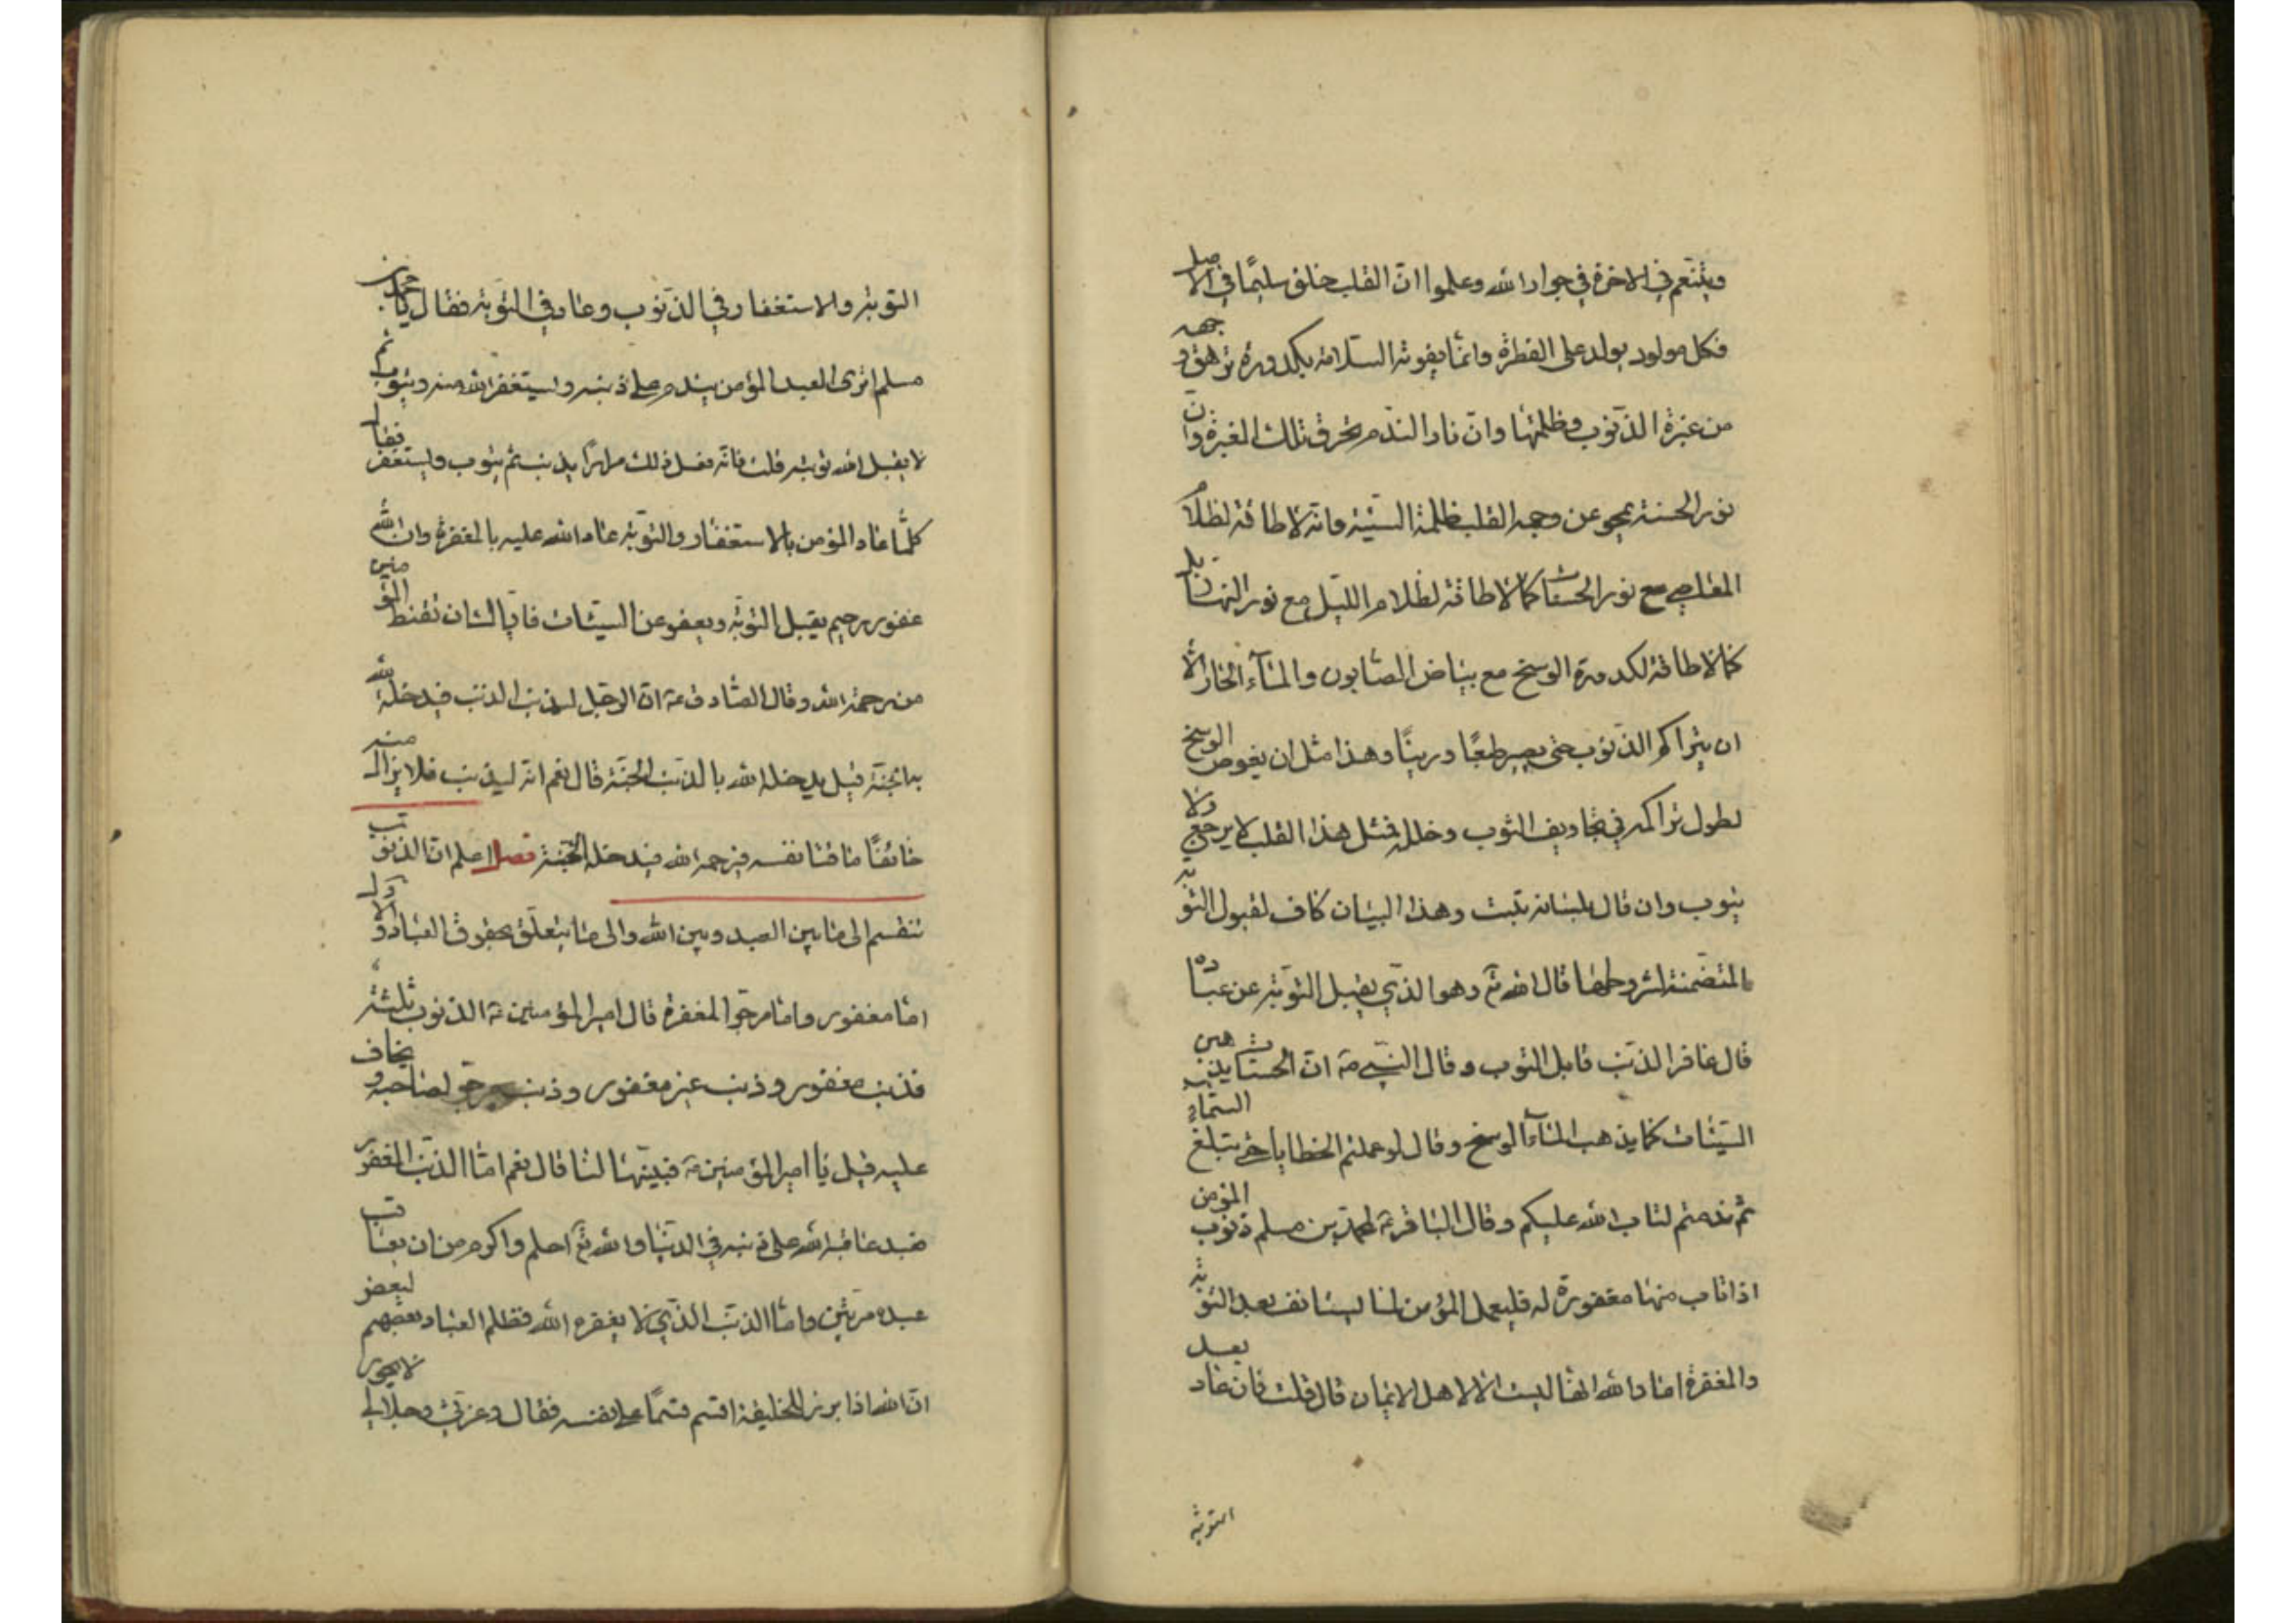 ويتنعم في الاخرة في جوار الله وعلموا انّ القلب خلق سليمًا في الاصل
فكل مولود يولد على الفطرة وانمّا يفوته السّلامة بكدورة ترهق وجهه
من غبرة الذّنوب وظلمتها وانّ نار النّدم تحرق تلك الغبرة وانّ
نور الحسنة يمحو عن وجه القلب ظلمة السّيّئة وانّه لا طاقة لظلام
المعاصي مع نور الحسنات كما لا طاقة لظلام اللّيل مع نور النهار بل
كما لا طاقة لكدورة الوسخ مع بياض الصّابون والمآء الحار الّا
ان يتراكم الذّنوب حتى يصير طبعًا ورينًا وهذا مثل ان يغوص الوسخ
لطول تراكمه في تجاويف الثوب وخلله فمثل هذا القلب لا يرجع ولا
يتوب وان قال بلسانه تبت وهذا البيان كاف لقبول التوبة
المتضمّنة لشروطها قال الله تع وهو الذّي يقبل التّوبة عن عباده
قال غافر الذّنب قابل التوب وقال النّبي ص انّ الحسنات يذهبن
السّيّئات كما يذهب المآء الوسخ وقال لو عملتم الخطايا حتى تبلغ السّماء
ثم ندمتم لتاب الله عليكم وقال الباقر ع لمحمّد بن مسلم ذنوب المؤمن
اذا تاب منها مغفورة له فليعمل المؤمن لما يستانف بعد التّوبة
والمغفرة اما والله انها ليست الا لاهل الايمان قال قلت فان عاد بعد
التوبة
التوبة والاستغفار في الذّنوب وعاد في التّوبة فقال يا محمد بن
مسلم اترى العبد المؤمن يندم على ذنبه ويستغفر الله منه ويتوب ثم
لا يقبل الله توبته قلت فانّه فعل ذلك مرارًا يذنب ثم يتوب ويستغفر فقال
كلّما عاد المؤمن بالاستغفار والتّوبة عاد الله عليه بالمغفرة وان الله
غفور رحيم يقبل التّوبة ويعفو عن السّيّئات فايّاك ان تقنط المؤمنين
من رحمة الله وقال الصّادق ع انّ الرّجل ليذنب الذنب فيدخله الله
به الجنّة قيل يدخله الله بالذّنب الجنّة قال نعم انّه ليذنب فلا يزال منه
خائفًا ماقتا نفسه فيرحمه الله فيدخله الجنّة فصل اعلم انّ الذّنوب
تنقسم الى ما بين العبد وبين الله والى ما يتعلّق بحقوق العباد والاوّل
امّا مغفور وامّا مرجوّ المغفرة قال امير المؤمنين ع الذنوب ثلثة
فذنب مغفور وذنب غير مغفور وذنب مرجوّ لصاحبه ويخاف
عليه قيل يا امير المؤمنين ع فبيّنها لنا قال نعم امّا الذّنب المغفور
فعبد عاقبه الله على ذنبه في الدّنيا والله تع احلم واكرم من ان يعاقب
عبده مرتين وامّا الذنب الذّي لا يغفره الله فظلم العباد بعضهم لبعض
انّ الله اذا برز للخليقة اقسم قسمًا على نفسه فقال وعزّتي وجلالي لا يجوز